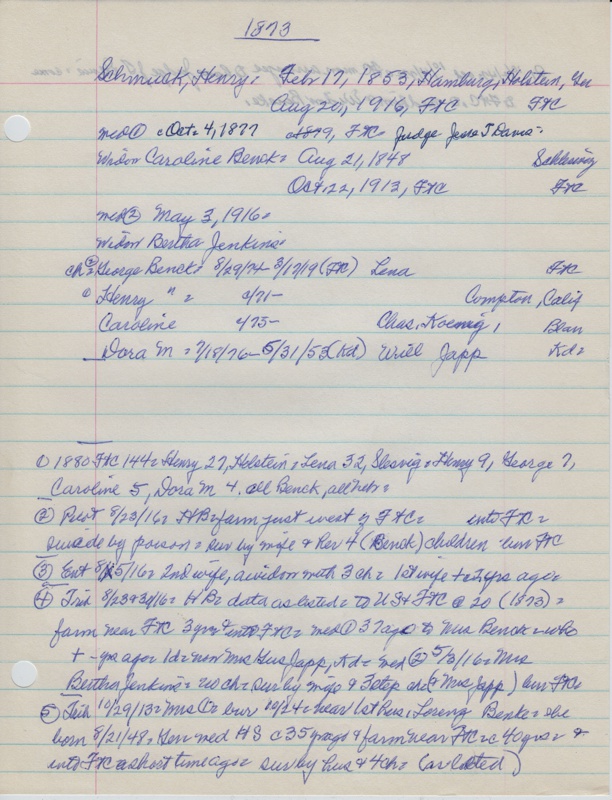 1873
Schmuck, Henry: Feb 17, 1853, Hamburg, Holstein, Ger
Aug 20, 1916, FtC FtC
med① cOct 4, 1877 c1879, FtC= Judge Jesse T Davis=
Widow Caroline Benck= Aug 21, 1848 Schleswig
Oct 22, 1913, FtC FtC
med② May 3, 1916=
Widow Bertha Jenkins=
ch②= George Benck= 8/29/74- 3/17/19 (FtC) Lena FtC
① Henry " = c/71- Compton, Calif
Caroline c/75- Chas. Koenig, Blair
Dora M = 7/18/76- 5/31/53 (Kd) Will Japp Kd=
① 1880 FtC 144= Henry 27, Holstein= Lena 32, Slesvig= Henry 9, George 7,
Caroline 5, Dora M 4. all Benck, all Neb=
② Pilot 8/23/16= HB= farm just west of FtC= into FtC=
suicide by poison= sur by wife & her 4 (Benck) children bur FtC
③ Ent 8/25/16= 2nd wife, a widow with 3 ch= 1st wife + 2 yrs ago=
④ Trib 8/23&30/16= HB= data as listed= to US & FtC @ 20 (1873)=
farm near FtC 3 yrs & into FtC= med① 37 ago to Mrs Benck= who
+ - yrs ago= 1d= now Mrs Gus Japp, Kd= med② 5/3/16= Mrs
Bertha Jenkins= no ch= sur by wife & 3 step ch (& Mrs Japp) bur FtC
⑤ Trib 10/29/13= Mrs C= bur 10/24= near 1st hus= Lorenz Benck= she
born 8/21/48= Ger= med HS c35 yrs ago & farm near FtC= c 40 yrs= &
into FtC a short time ago= sur by hus & 4 ch= (as listed)